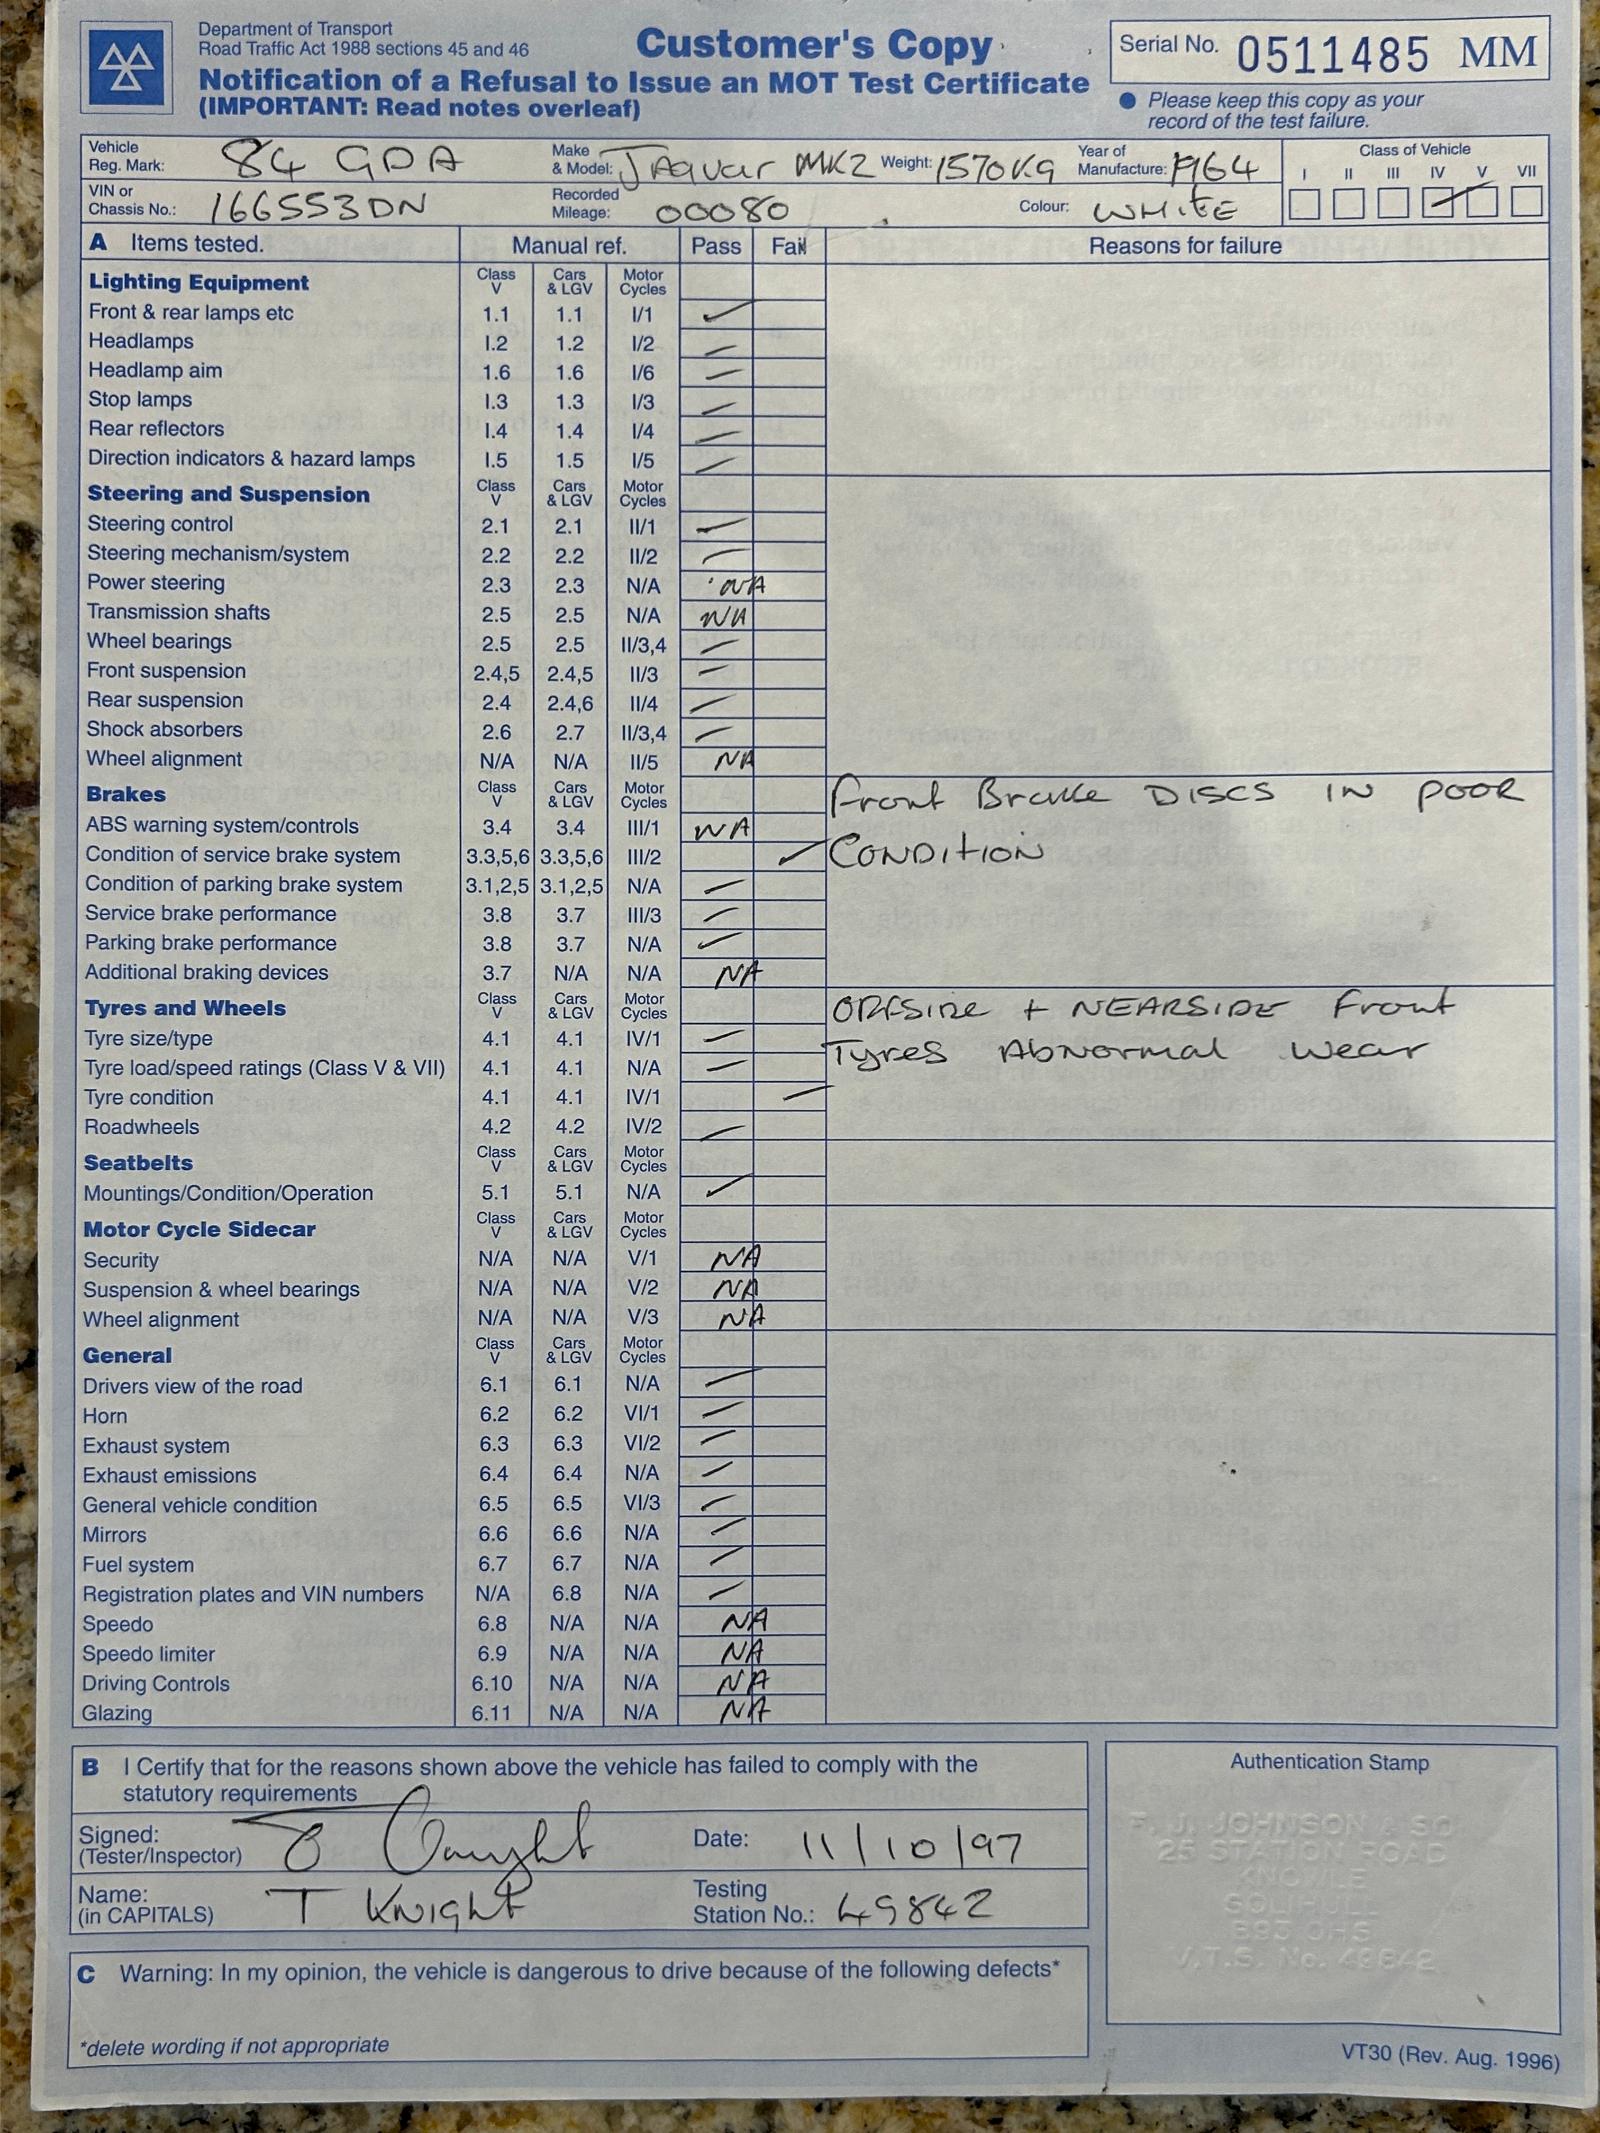 Department of Transport
Road Traffic Act 1988 sections 45 and 46
Customer's Copy
Serial No. 0511485 MM
Notification of a Refusal to Issue an MOT Test Certificate
(IMPORTANT: Read notes overleaf)
● Please keep this copy as your
record of the test failure.
Vehicle Reg. Mark: 84 GDA Make & Model: JAguar MK2 Weight: 1570KG Year of Manufacture: 1964 Class of Vehicle I II III IV V VII
VIN or Chassis No.: 166553DN Recorded Mileage: 00080 Colour: WHiTE
A Items tested. Manual ref. Pass Fail Reasons for failure
Lighting Equipment Class V Cars & LGV Motor Cycles
Front & rear lamps etc 1.1 1.1 I/1 ✓
Headlamps I.2 1.2 I/2 ✓
Headlamp aim 1.6 1.6 I/6 ✓
Stop lamps I.3 1.3 I/3 ✓
Rear reflectors I.4 1.4 I/4 ✓
Direction indicators & hazard lamps I.5 1.5 I/5 ✓
Steering and Suspension Class V Cars & LGV Motor Cycles
Steering control 2.1 2.1 II/1 ✓
Steering mechanism/system 2.2 2.2 II/2 ✓
Power steering 2.3 2.3 N/A NA
Transmission shafts 2.5 2.5 N/A NA
Wheel bearings 2.5 2.5 II/3,4 ✓
Front suspension 2.4,5 2.4,5 II/3 ✓
Rear suspension 2.4 2.4,6 II/4 ✓
Shock absorbers 2.6 2.7 II/3,4 ✓
Wheel alignment N/A N/A II/5 NA
Brakes Class V Cars & LGV Motor Cycles Front Brake DISCS IN POOR
ABS warning system/controls 3.4 3.4 III/1 NA
Condition of service brake system 3.3,5,6 3.3,5,6 III/2 ✓ CONDITION
Condition of parking brake system 3.1,2,5 3.1,2,5 N/A ✓
Service brake performance 3.8 3.7 III/3 ✓
Parking brake performance 3.8 3.7 N/A ✓
Additional braking devices 3.7 N/A N/A NA
Tyres and Wheels Class V Cars & LGV Motor Cycles OFFSIDE + NEARSIDE Front
Tyre size/type 4.1 4.1 IV/1 ✓ Tyres Abnormal Wear
Tyre load/speed ratings (Class V & VII) 4.1 4.1 N/A ✓
Tyre condition 4.1 4.1 IV/1 ✓
Roadwheels 4.2 4.2 IV/2 ✓
Seatbelts Class V Cars & LGV Motor Cycles
Mountings/Condition/Operation 5.1 5.1 N/A ✓
Motor Cycle Sidecar Class V Cars & LGV Motor Cycles
Security N/A N/A V/1 NA
Suspension & wheel bearings N/A N/A V/2 NA
Wheel alignment N/A N/A V/3 NA
General Class V Cars & LGV Motor Cycles
Drivers view of the road 6.1 6.1 N/A ✓
Horn 6.2 6.2 VI/1 ✓
Exhaust system 6.3 6.3 VI/2 ✓
Exhaust emissions 6.4 6.4 N/A ✓
General vehicle condition 6.5 6.5 VI/3 ✓
Mirrors 6.6 6.6 N/A ✓
Fuel system 6.7 6.7 N/A ✓
Registration plates and VIN numbers N/A 6.8 N/A ✓
Speedo 6.8 N/A N/A NA
Speedo limiter 6.9 N/A N/A NA
Driving Controls 6.10 N/A N/A NA
Glazing 6.11 N/A N/A NA
B I Certify that for the reasons shown above the vehicle has failed to comply with the
statutory requirements
Signed: (Tester/Inspector) Date: 11/10/97
Name: (in CAPITALS) T KNIGHT Testing Station No.: 49842
Authentication Stamp
F. J. JOHNSON & SO
25 STATION ROAD
KNOWLE
SOLIHULL
B93 0HS
V.T.S. No. 49842
C Warning: In my opinion, the vehicle is dangerous to drive because of the following defects*
*delete wording if not appropriate
VT30 (Rev. Aug. 1996)